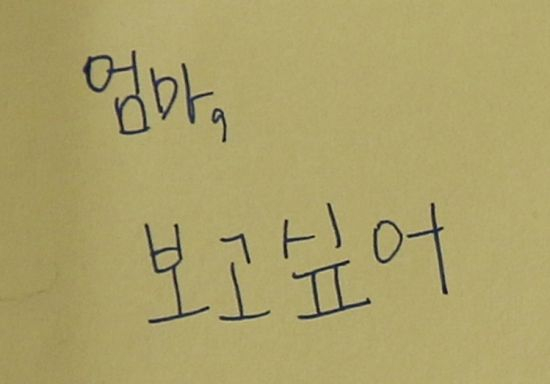 엄마,
보고싶어